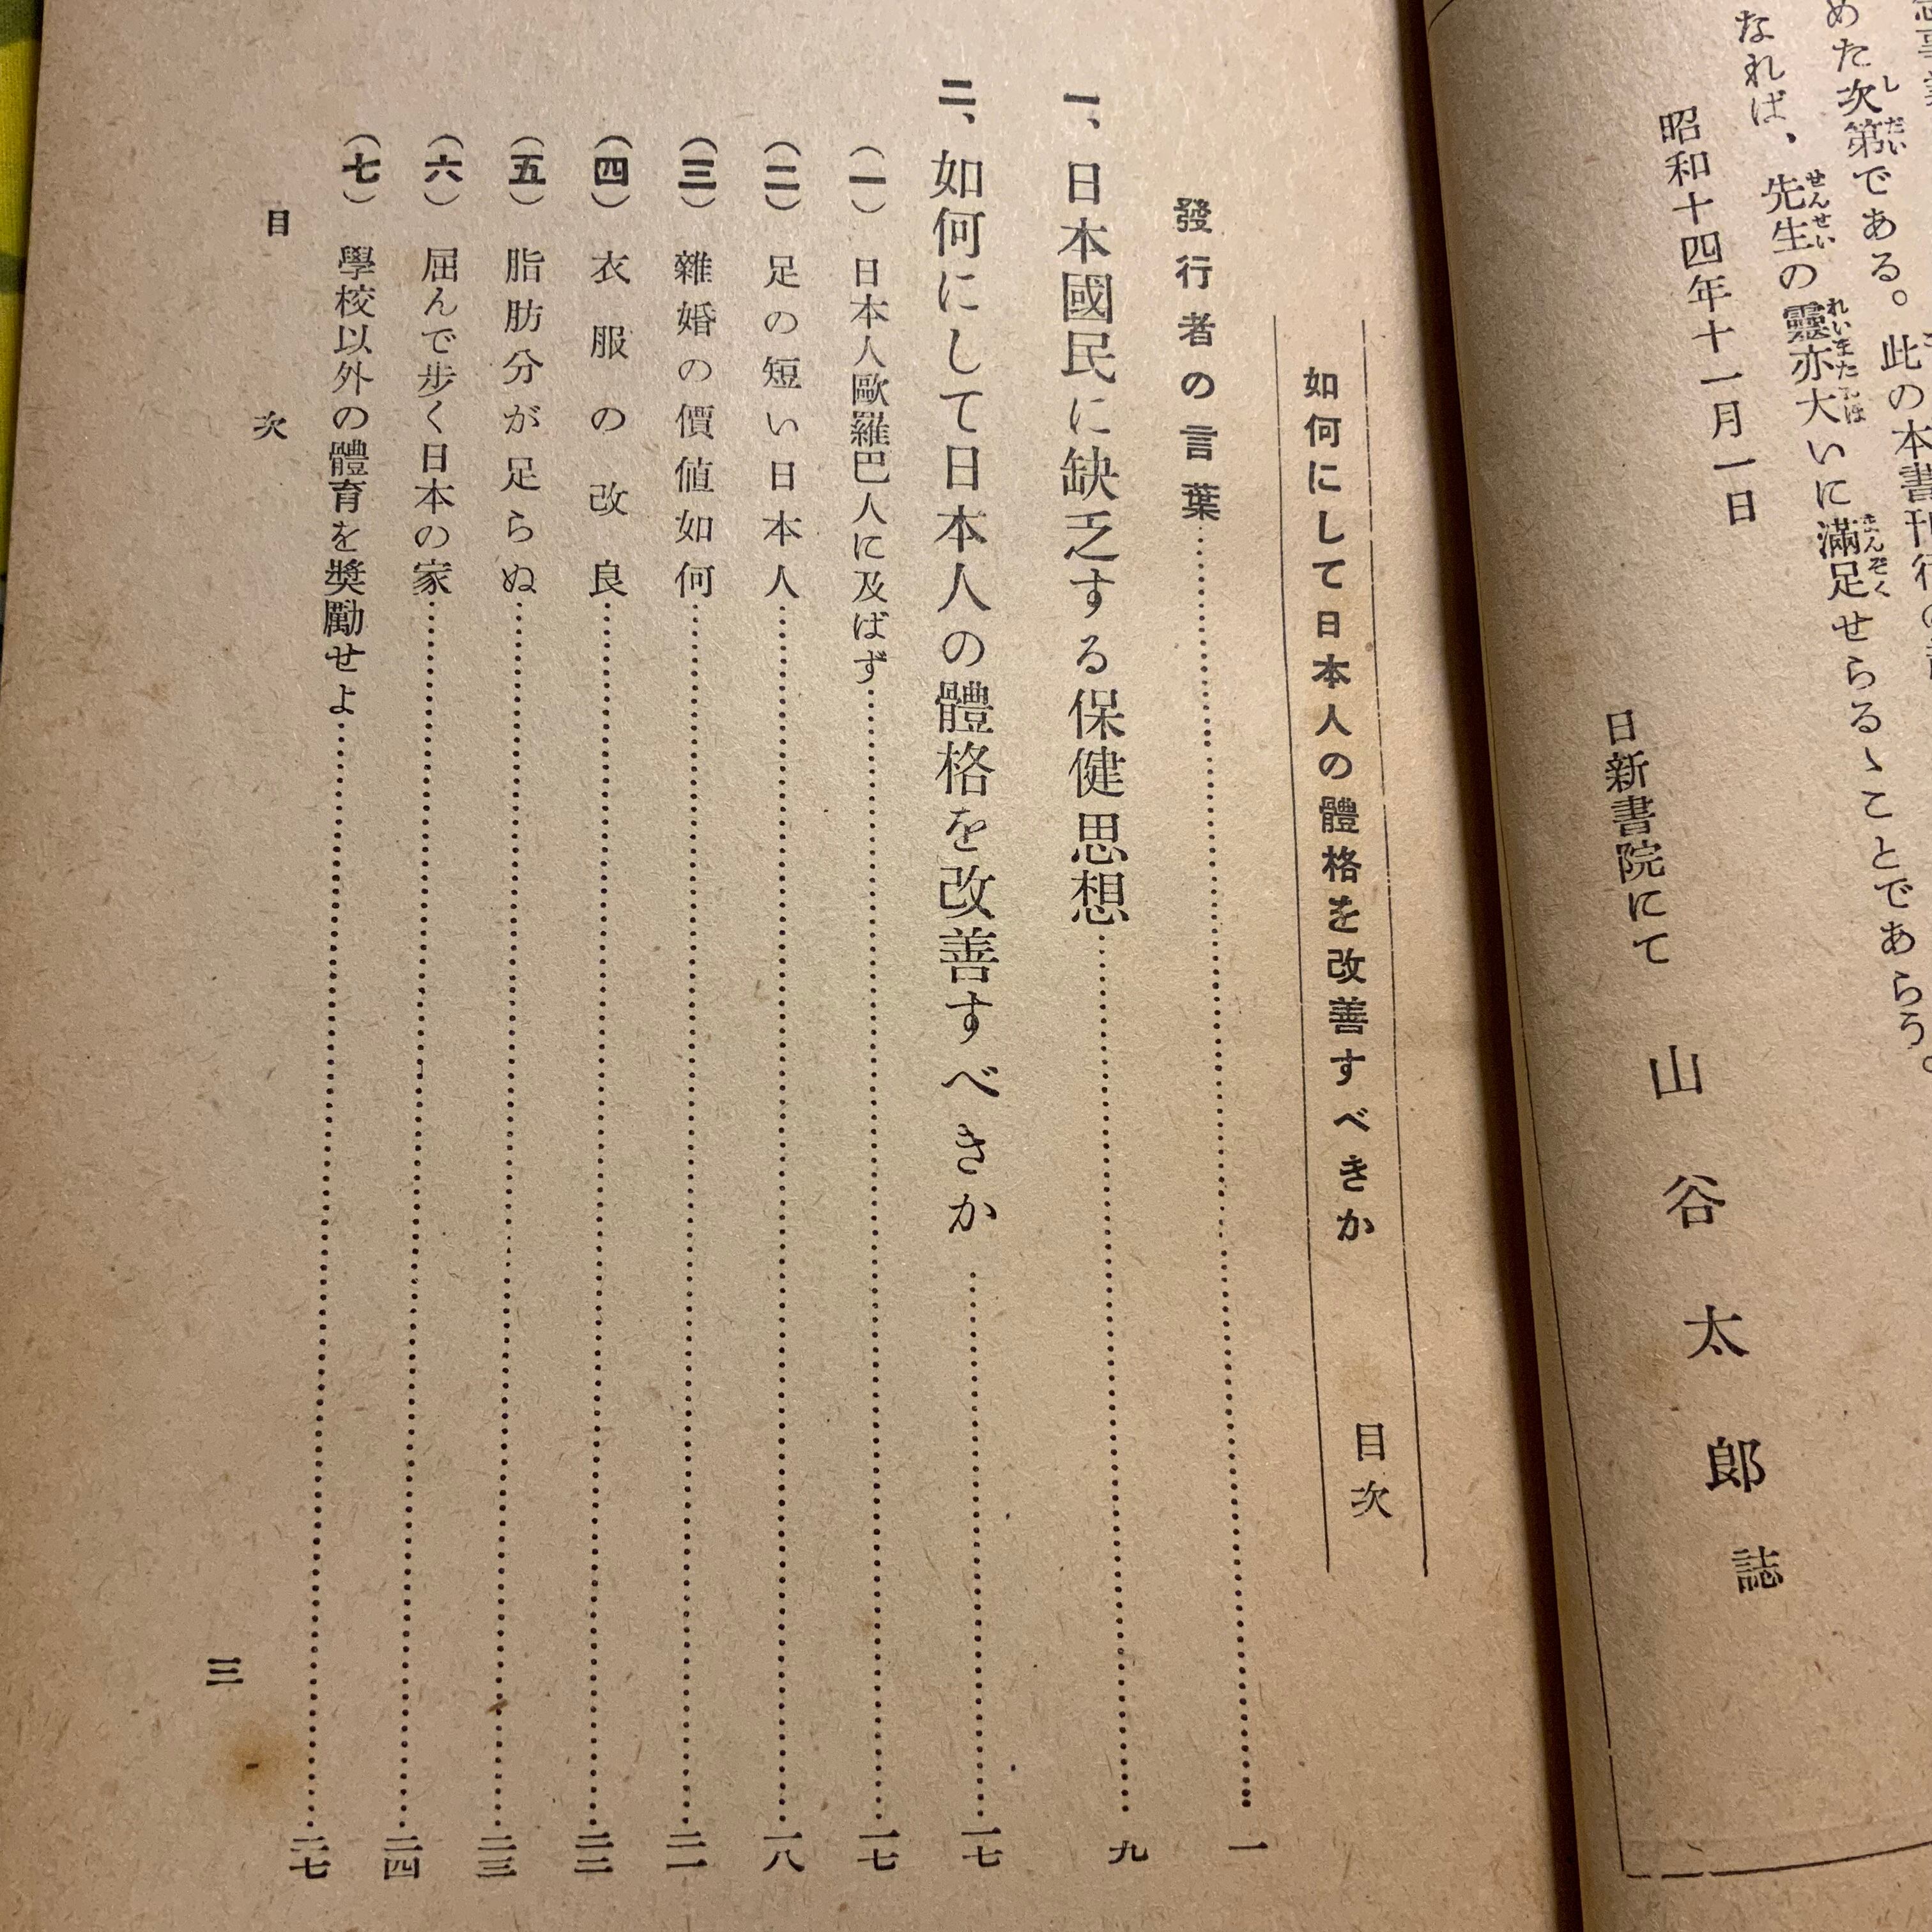 めた次第である。此の本書刊行の
なれば、先生の靈亦大いに滿足せらるゝことであらう。
昭和十四年十一月一日
日新書院にて 山谷太郎誌
如何にして日本人の體格を改善すべきか 目次
發行者の言葉…………一
一、日本國民に缺乏する保健思想…………九
二、如何にして日本人の體格を改善すべきか…………一七
(一) 日本人歐羅巴人に及ばず…………一七
(二) 足の短い日本人…………一八
(三) 雜婚の價値如何…………二一
(四) 衣服の改良…………二二
(五) 脂肪分が足らぬ…………二三
(六) 屈んで步く日本の家…………二四
(七) 學校以外の體育を奬勵せよ…………二七
目次
三